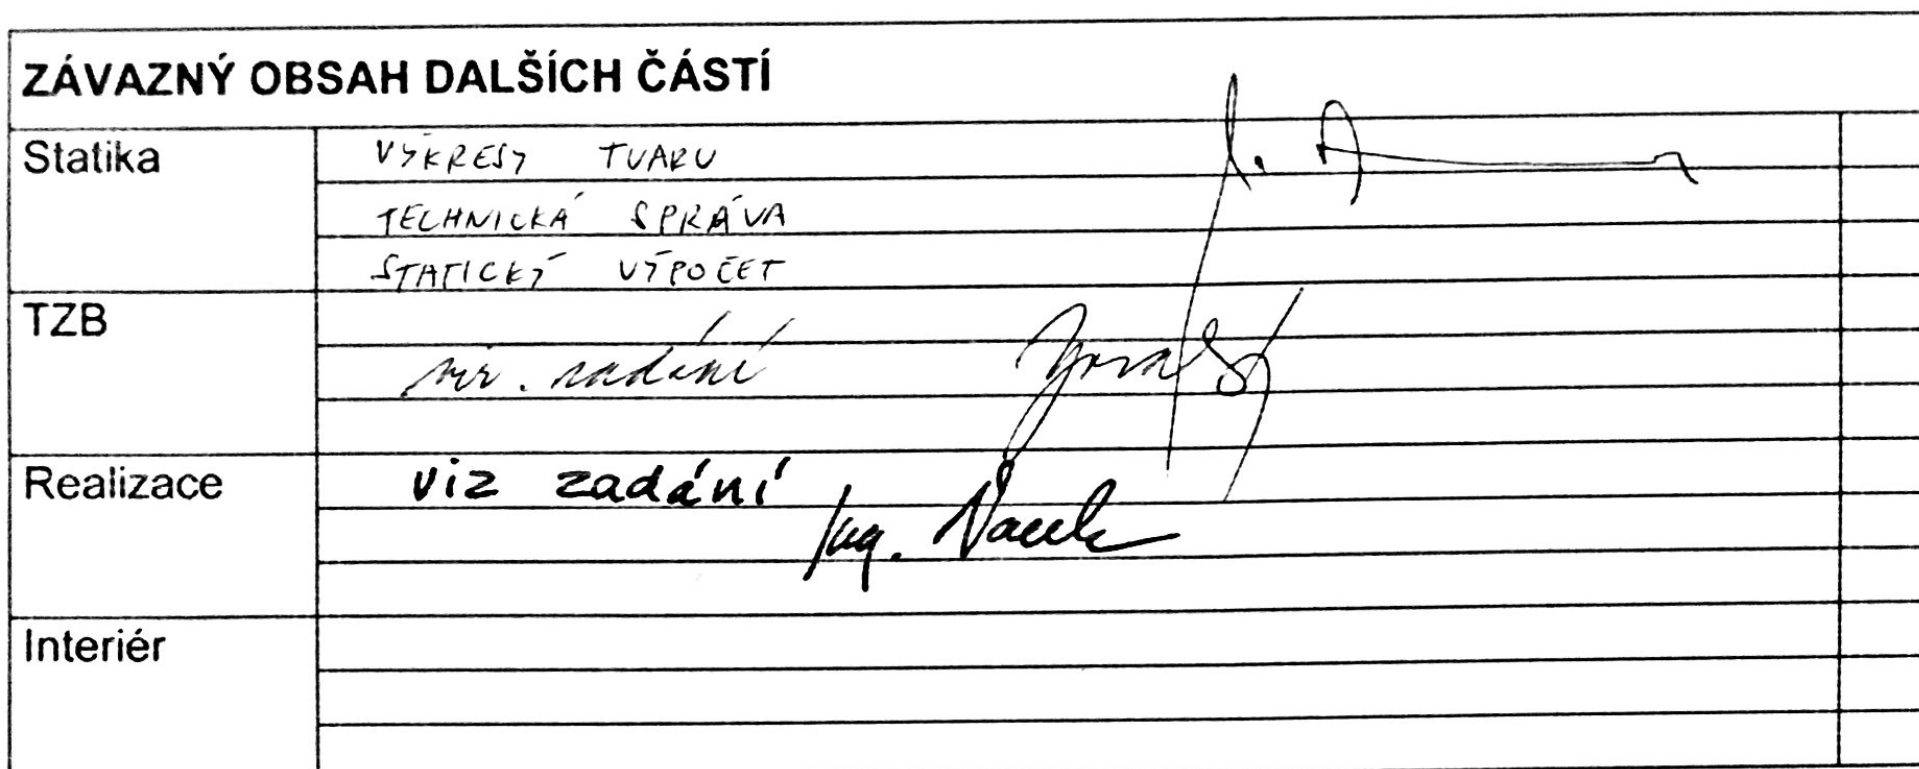 ZÁVAZNÝ OBSAH DALŠÍCH ČÁSTÍ
Statika VÝKRESY TVARU
TECHNICKÁ SPRÁVA
STATICKÝ VÝPOČET
TZB
viz. zadání
Realizace viz zadání
Ing.
Interiér